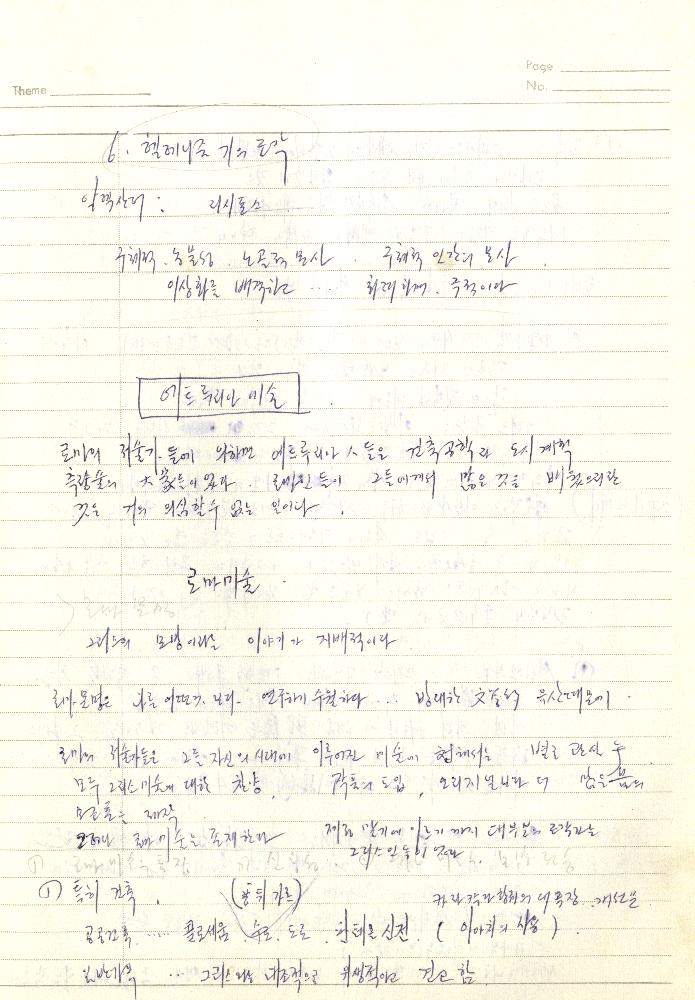 Page
Theme
No.
6. 헬레니즘 기의 조각
알렉산더 : 리시포스
구체적. 노골적 묘사. 구체적 인간의 묘사
이상화를 배격하고 ... 회화적. 극적이다
에트루리아 미술
로마의 저술가들에 의하면 에트루리아人들은 건축공학과 도시계획
측량술의 大家들이었다. 로마인들이 그들에게서 많은 것을 배웠으리란
것은 거의 의심할 수 없는 일이다.
로마미술.
그리스의 모방이라는 이야기가 지배적이다
로마문명은 다른 어떤 보다 연구하기 수월하다 ... 방대한 文글的 유산때문에.
로마의 저술가들은 그들 자신의 시대에 이루어진 미술에 대해서는 별로 관심 無
모두 그리스 미술에 대한 찬양, 작품의 도입, 오리지날보다 더 많은
모조품을 제작
그러나 로마미술은 존재한다 제정 말기에 이르기까지 대부분의 조각가는
그리스인들이었다
① 특히 건축. 카라칼라 황제의 대목장. 개선문
공공건축 ..... 콜로세움. 수로. 도로. 판테온 신전 (아아치의 사용).
일반가옥 ... 그리스와는 대조적으로 위생적이고 견고함.